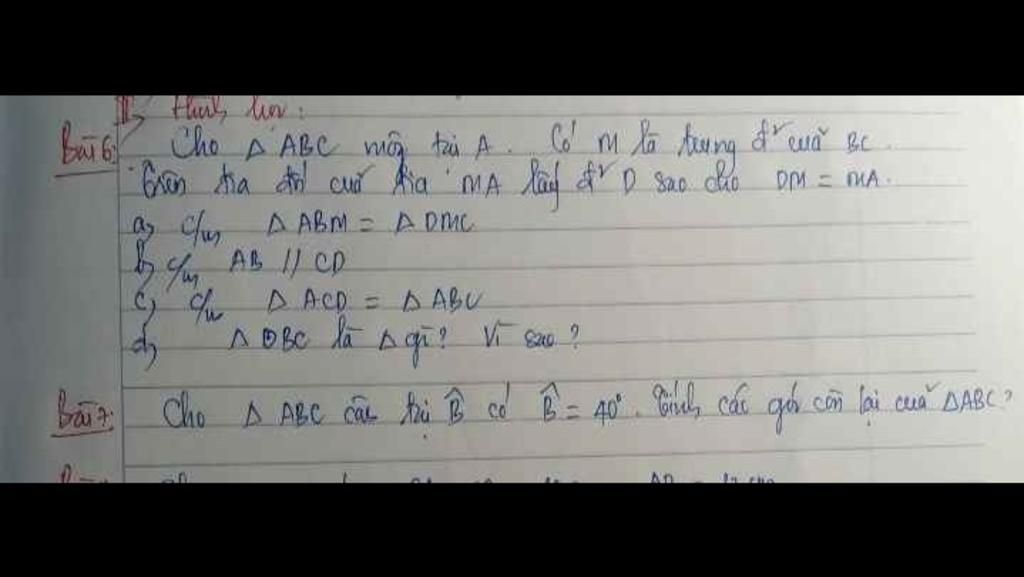 II, Hình học:
Bài 6: Cho Δ ABC vuông tại A. Có M là trung đ' của BC.
Trên tia đối của tia MA lấy đ' D sao cho DM = MA.
a, c/m Δ ABM = Δ DMC
b, c/m AB // CD
c, c/m Δ ACD = Δ ABC
d, Δ DBC là Δ gì? Vì sao?
Bài 7: Cho Δ ABC cân tại B̂ có B̂ = 40°. Tính các góc còn lại của ΔABC?